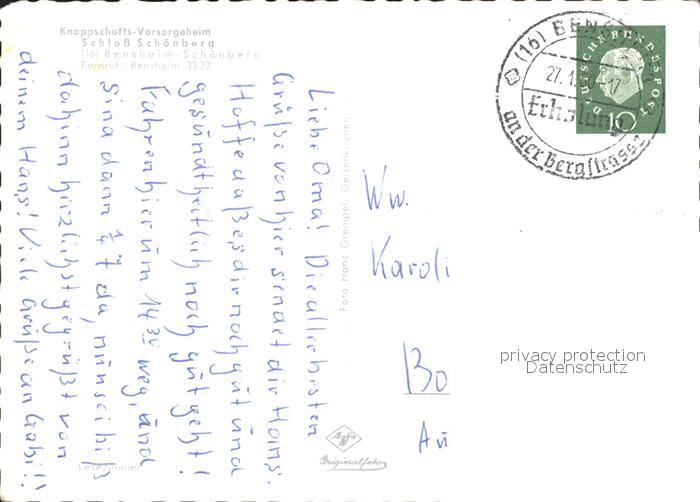 Knappschafts-Vorsorgeheim
Schloß Schönberg
(16) Bensheim-Schönberg
Fernruf: Bensheim 3332
Liebe Oma! Die allerbesten
Grüße von hier sendet dir Hans.
Hoffe daß es dir noch gut und
gesundheitlich noch gut geht!
Fahren hier um 14 30 weg, und
sind dann 1/2 7 da, nun sei bis
dahinn herzlichst gegrüßt von
deinem Hans! Viele Grüße an Gabi!!
Lesezimmer
Foto Hans Grempel, Gelsenkirchen
Agfa
Originalfoto
(16) BENS
27.1
17
Erholung
an der Bergstrasse
DEUTSCHE BUNDESPOST
10
Ww.
Karoli
Bo
Au
privacy protection
Datenschutz